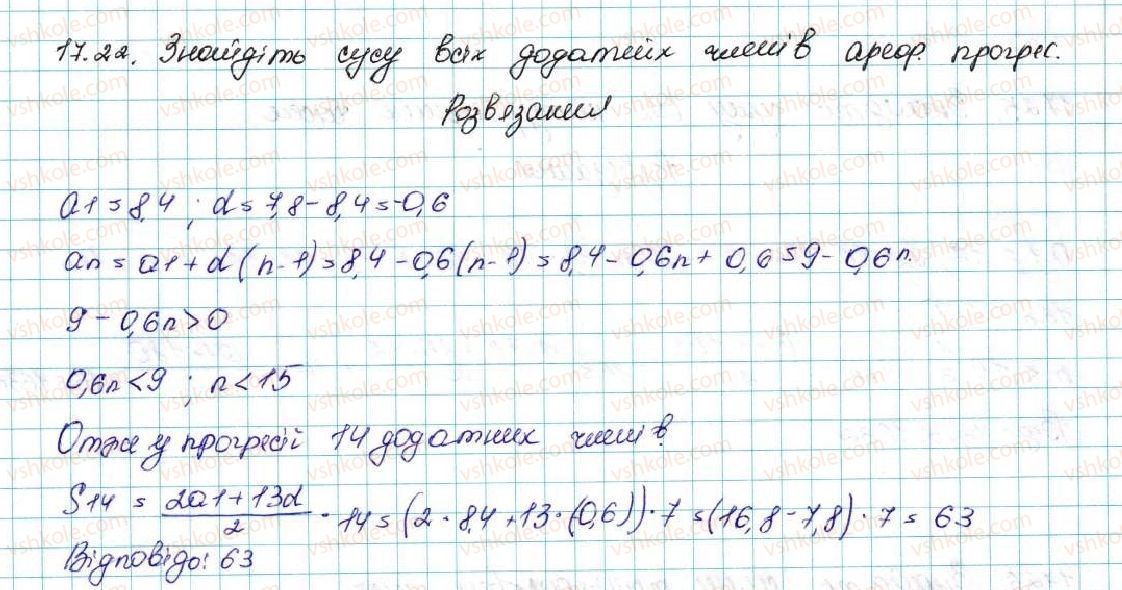 17.22. Знайдіть сусу всіх додатніх членів ариф. прогрес.
Розвязання
a1 = 8,4 ; d = 7,8 - 8,4 = -0,6
an = a1 + d(n-1) = 8,4 - 0,6(n-1) = 8,4 - 0,6n + 0,6 = 9 - 0,6n.
9 - 0,6n > 0
0,6n < 9 ; n < 15
Отже у прогресії 14 додатних членів
S14 = (2a1 + 13d)/2 · 14 = (2 · 8,4 + 13 · (0,6)) · 7 = (16,8 - 7,8) · 7 = 63
Відповідь: 63